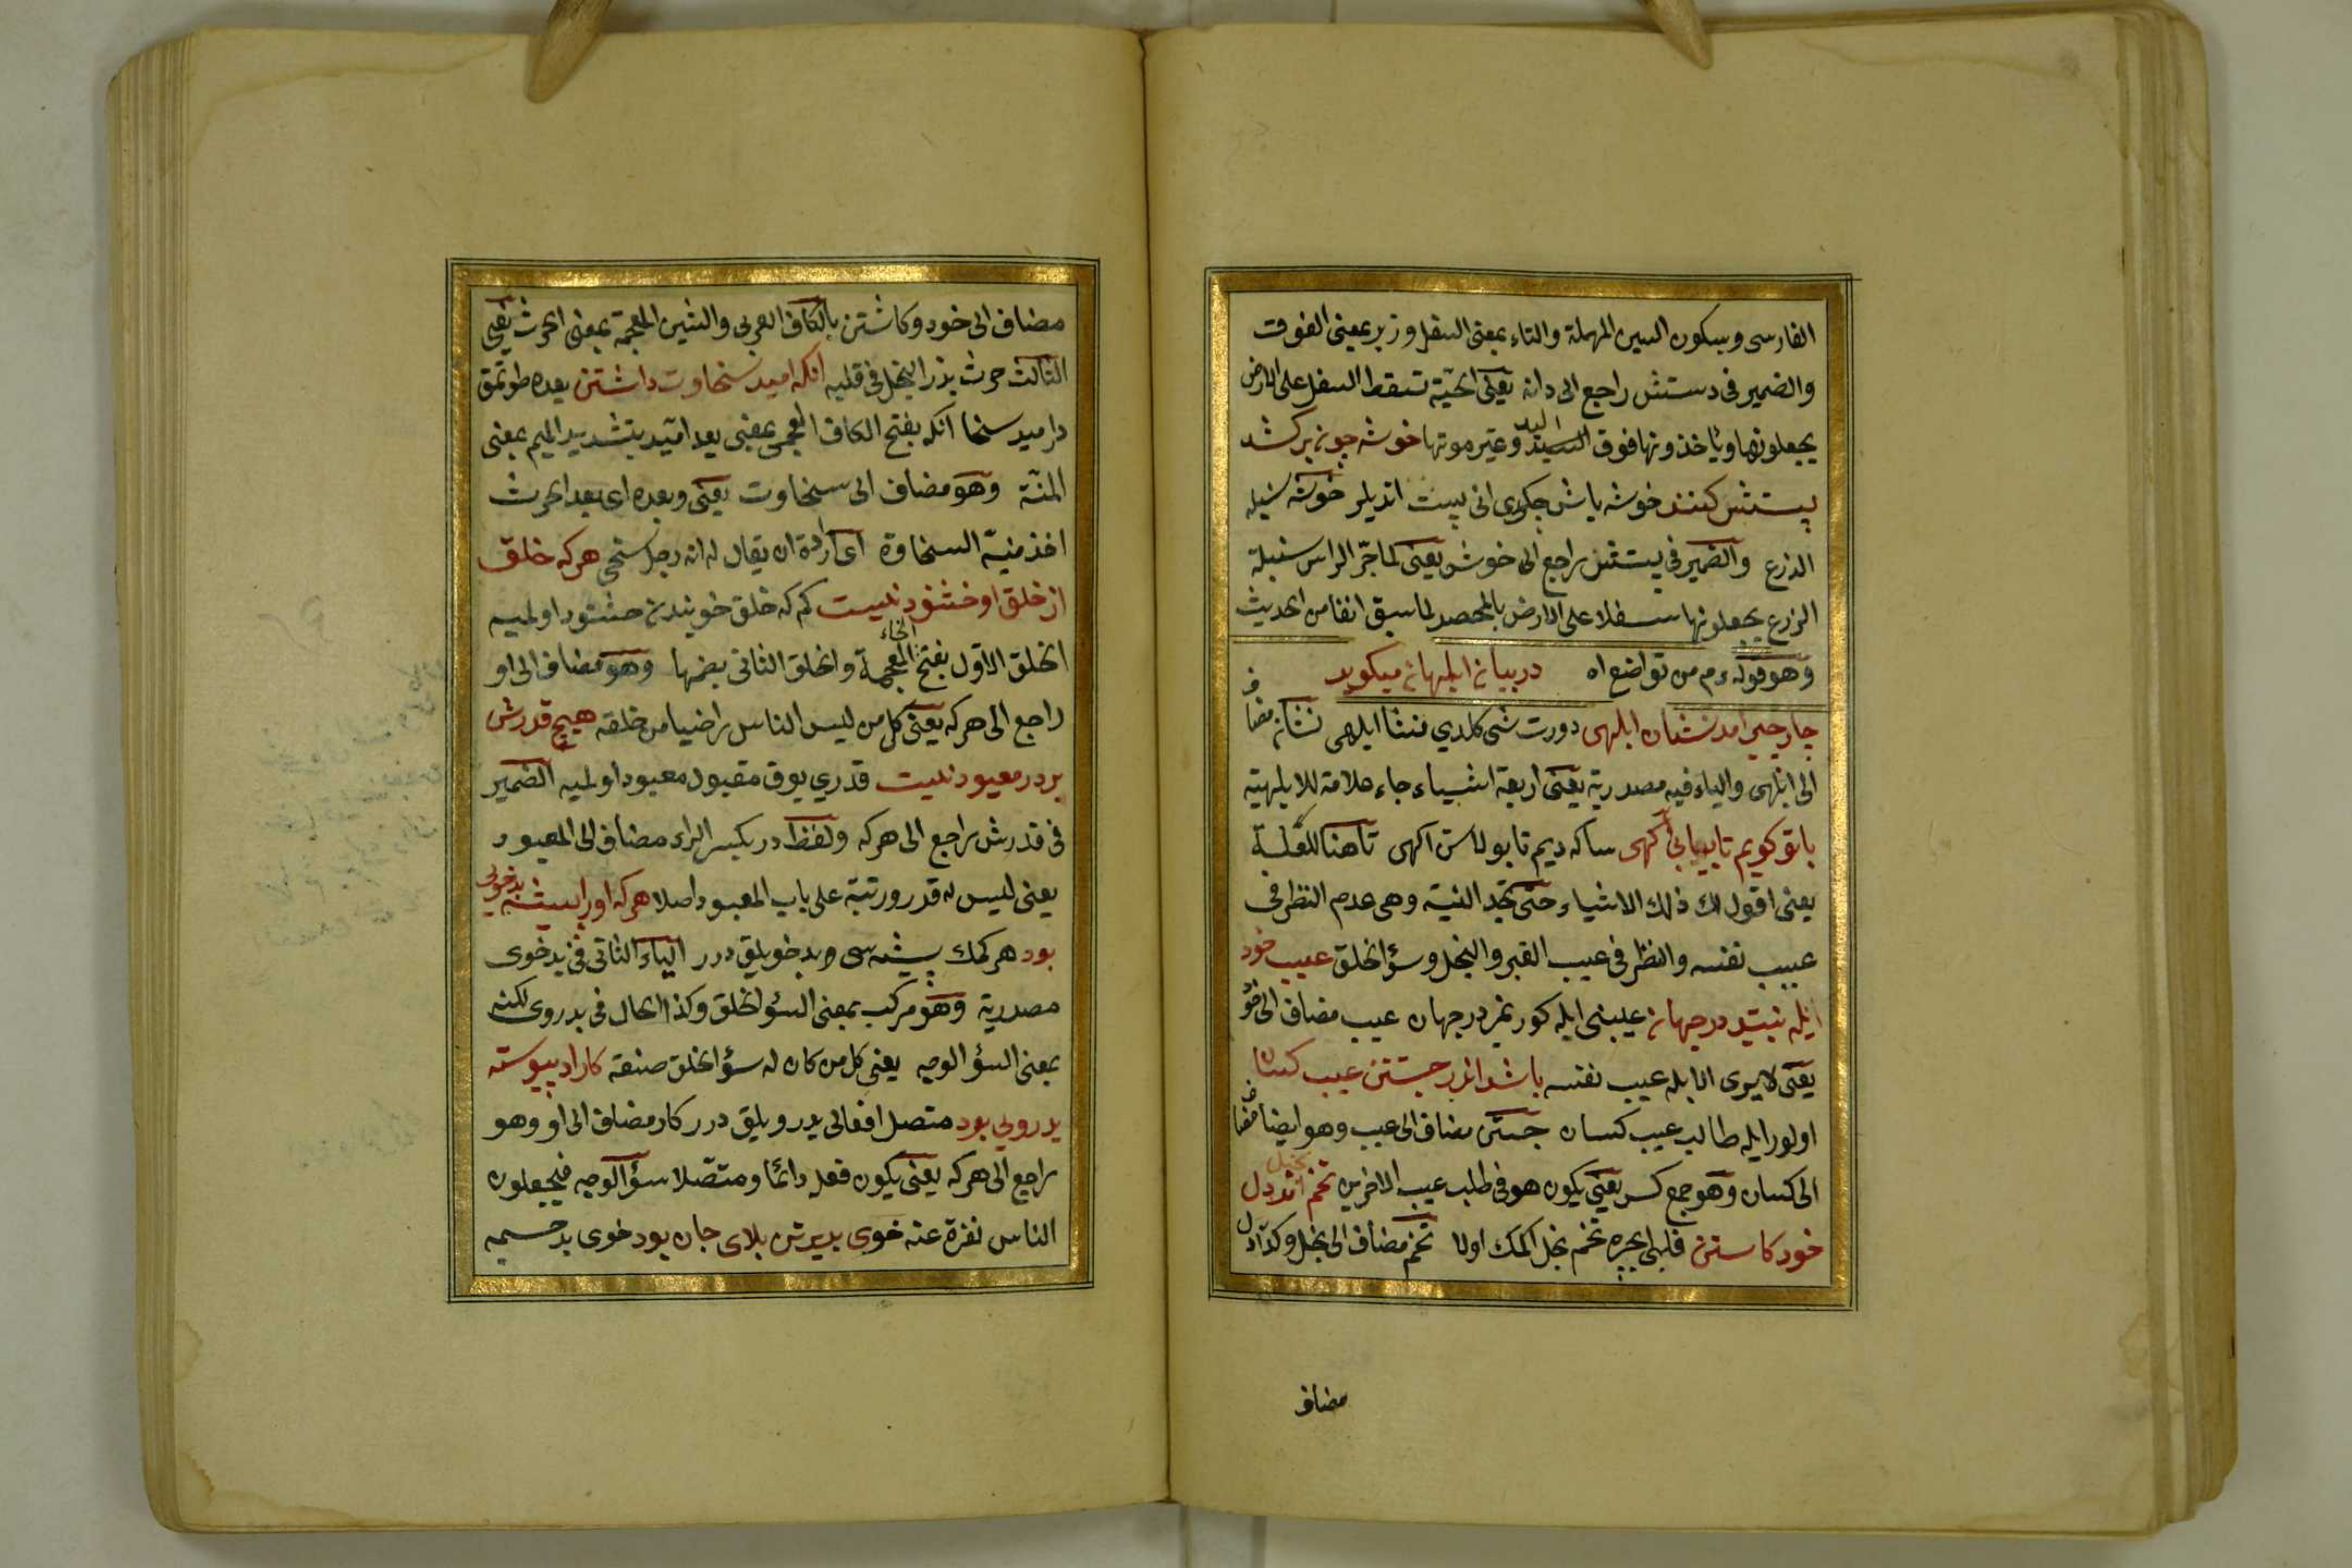 الفارسی وبسكون السين المهملة والتاء بمعنى السفل وزبر بمعنى الفوقت
والضمير فى دستش راجع الى دانه يعنى الحبّة تسقط السفل على الارض
يجعلونها وياخذونها فوق اليد وغيرموتها خوشه چون بركشد
پستش كنند خوشه باش چكوى انى پست اتديلر خوشه سنبله
الذرع والضمير فى پستش راجع الى خوشه يعنى لما جرّ الراس سنبلة
الزرع يجعلونها سفلا على الارض بالمحصد لما سبق انفا من الحديث
وهو قوله ءم من تواضع اه در بيان ابلهان ميكويد
چار چيز امد نشان ابلهى دورت شى كلدي منشا ابلهى نشان مضاف
الى ابلهى والياء فيه مصدرية يعنى اربعة اشياء جاء علامة للابلهية
باتو كويم تا بيابى آكهى ساكه ديم تا بولاسن اكهى تا هنا للغلبة
يعنى اقول لك ذلك الاشياء حتى تجد النية وهى عدم النظر فى
عيب نفسه والنظر فى عيب القبر والبخل وسؤ الخلق عيب خود
ابله نبيند در جهان عيبنى ابله كورنمز در جهان عيب مضاف الى خود
يعنى لا يرى الابله عيب نفسه باشد اندر جستن عيب كسان
اولور ابله طالب عيب كسان جستن مضاف الى عيب وهو ايضا مضاف
الى كسان وهو جمع كس يعنى يكون هو فى طلب عيب الاخرين تخم بخل اندر دل
خود كاستن قلبى بچره تخم بخل اكمك اولا تخم مضاف الى بخل وكذا دل
مضاف
مضاف الى خود وكاشتن بالكاف العربى والشين المعجمة بمعنى الحرث يعنى
الثالث حرث بذر البخل فى قلبه انكه اميد سخاوت داشتن بعده طوتمق
در اميد سخا آنكه بفتح الكاف العجمى بمعنى بعد اميد بتشديد الميم بمعنى
المنّة وهو مضاف الى سخاوت يعنى وبعده اى بعد الحرث
اخذ منيّة السخاوة اى ارادة ان يقال له انه رجل سخى هركه خلق
از خلق او خشنود نيست كم كه خلق خويندن حشنود اولميه
الخلق الاول بفتح الخاء المعجمة والخلق الثانى بضمها وهو مضاف الى او
راجع الى هركه يعنى كل من ليس الناس راضيا من خلقه هيچ قدرش
بر در معبود نيست قدري يوق مقبول معبود اولميه الضمير
فى قدرش راجع الى هركه ولفظ در بكسر الراء مضاف الى المعبود
يعنى ليس له قدر ورتبة على باب المعبود اصلا هركه اورا پيشه بدخويى
بود هر كمك پيشه سى وبدخويلق درر الياء الثانى فى بدخوى
مصدرية وهو مركب بمعنى السؤ الخلق وكذا الحال فى بدروى لكنه
بمعنى السؤ الوجه يعنى كل من كان له سؤ الخلق صنعة كار او پيوسته
بدرويى بود متصل افعالى بدرويلق درر كار مضاف الى او وهو
راجع الى هركه يعنى يكون فعله دائما ومتصلا سؤ الوجه فيجعلون
الناس نفرة عنه خوى بد بر تن بلاى جان بود خوى بد جسمه